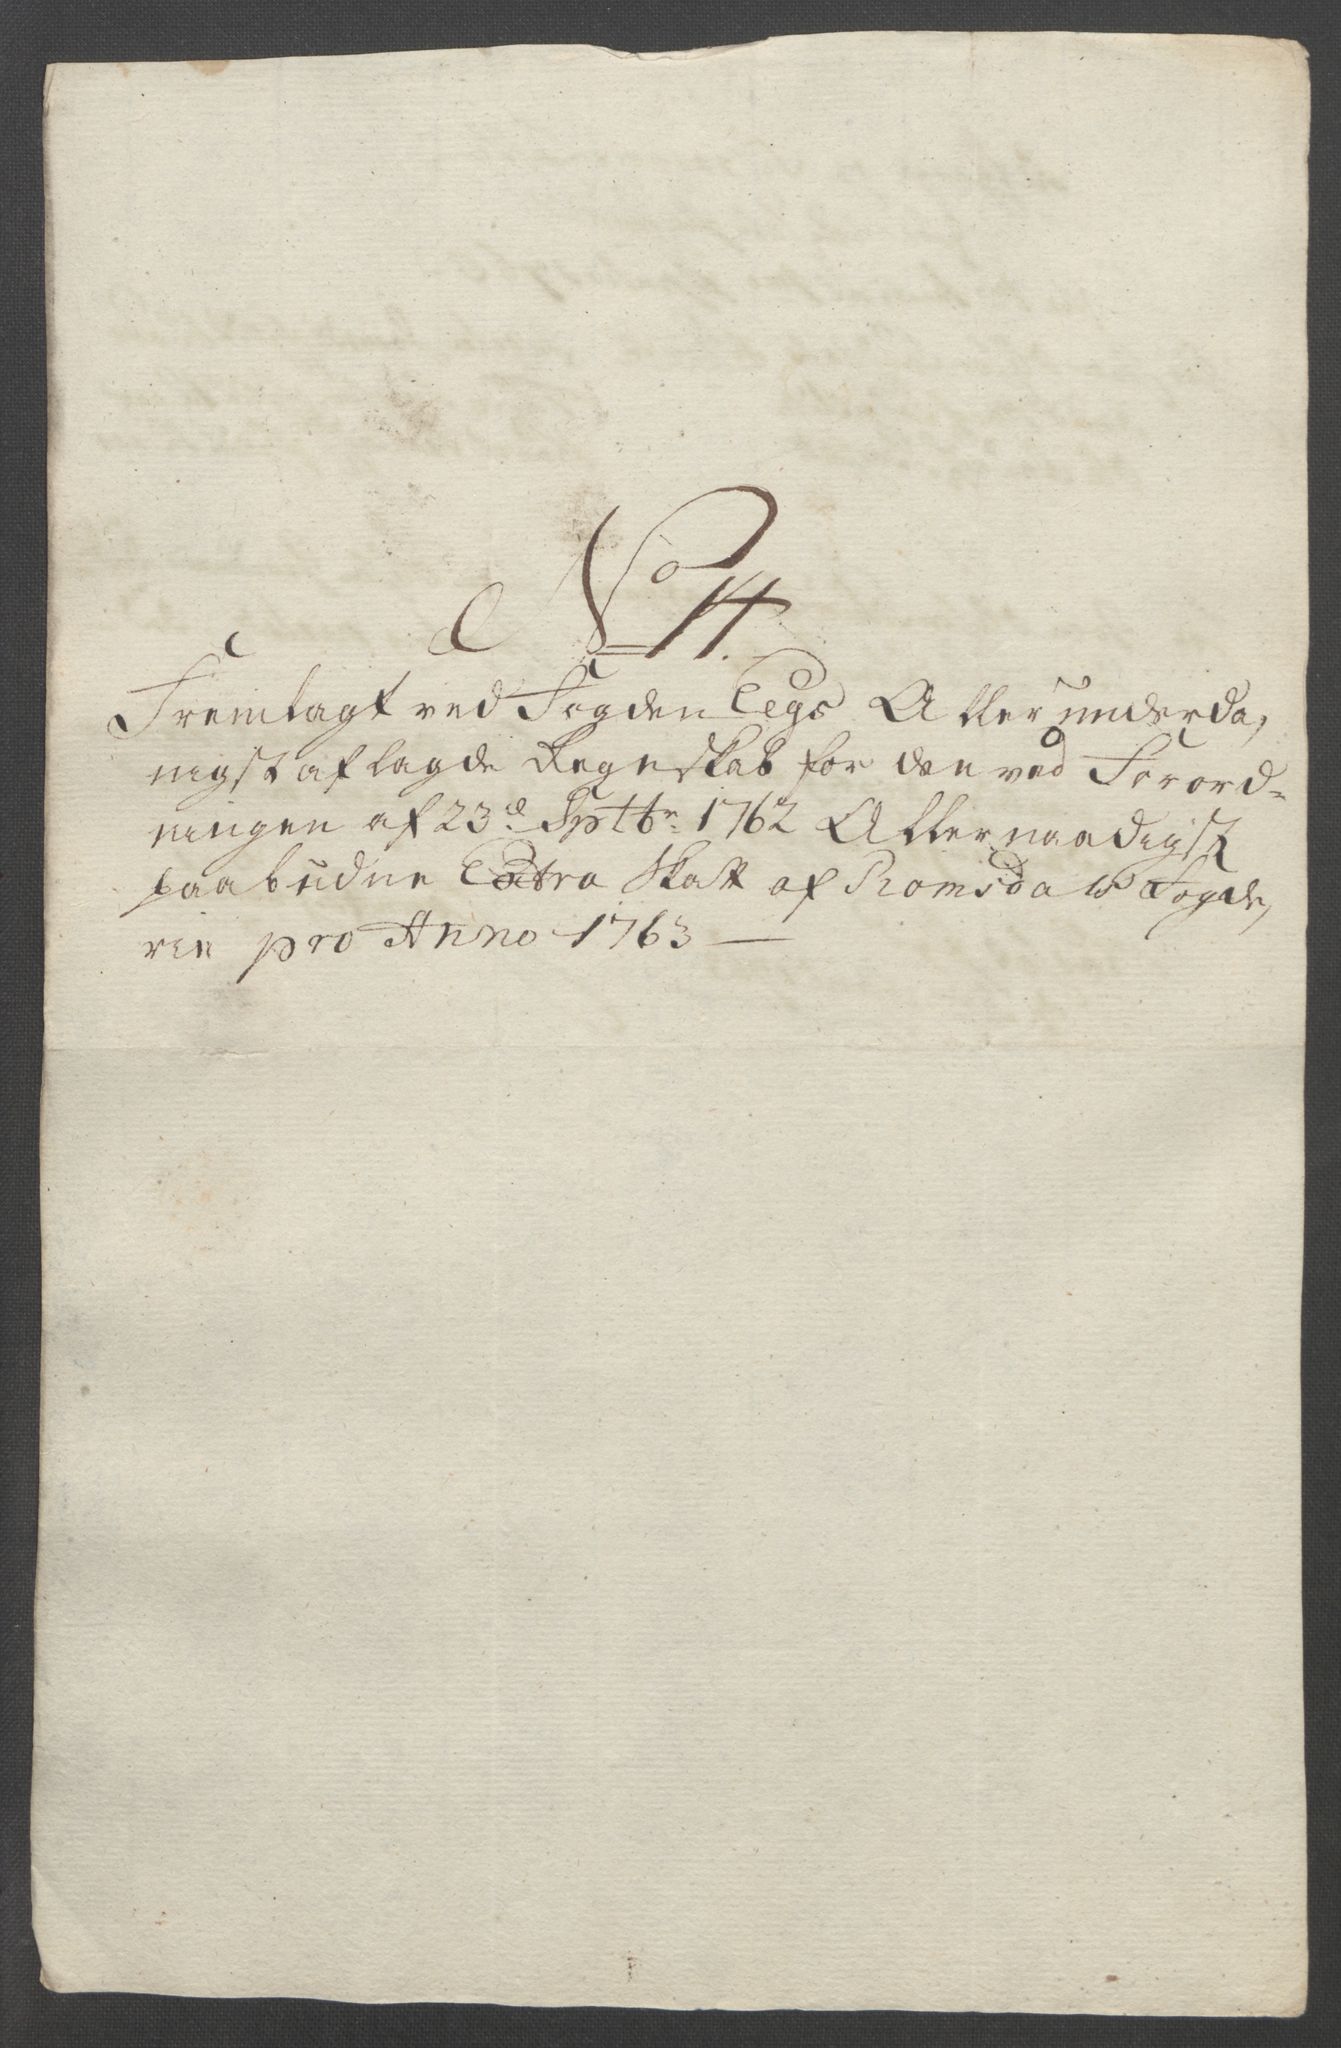 No 14.
Fremlagt ved Fogden Eegs Allerunderda,
nigst aflagde Regnskab for den ved Forord-
ningen af 23d Sptbr 1762 Allernaadigst
paabudne Extra Skatt af Romsdals Fogde,
rie pro Anno 1763 —